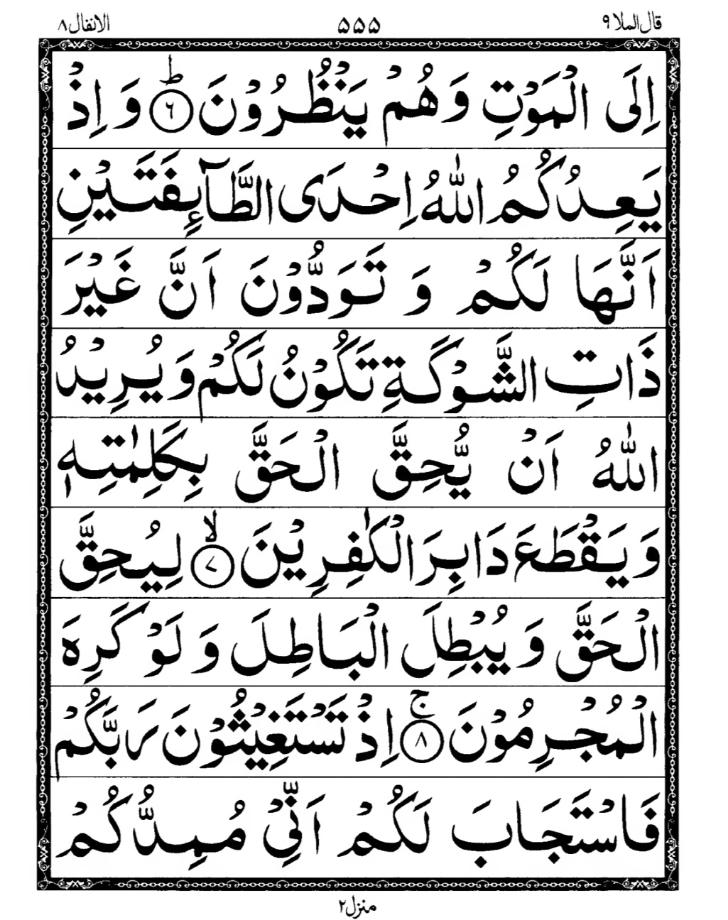 قال الملا ٩ ٥٥٥ الانفال ٨
اِلَى الْمَوْتِ وَهُمْ يَنْظُرُوْنَ ؕ﴿۶﴾ وَ اِذْ
يَعِدُكُمُ اللّٰهُ اِحْدَى الطَّآئِفَتَيْنِ
اَنَّهَا لَكُمْ وَ تَوَدُّوْنَ اَنَّ غَيْرَ
ذَاتِ الشَّوْكَةِ تَكُوْنُ لَكُمْ وَ يُرِيْدُ
اللّٰهُ اَنْ يُّحِقَّ الْحَقَّ بِكَلِمٰتِهٖ
وَ يَقْطَعَ دَابِرَ الْكٰفِرِيْنَ ۙ﴿۷﴾ لِيُحِقَّ
الْحَقَّ وَ يُبْطِلَ الْبَاطِلَ وَ لَوْ كَرِهَ
الْمُجْرِمُوْنَ ۚ﴿۸﴾ اِذْ تَسْتَغِيْثُوْنَ رَبَّكُمْ
فَاسْتَجَابَ لَكُمْ اَنِّيْ مُمِدُّكُمْ
منزل ٢